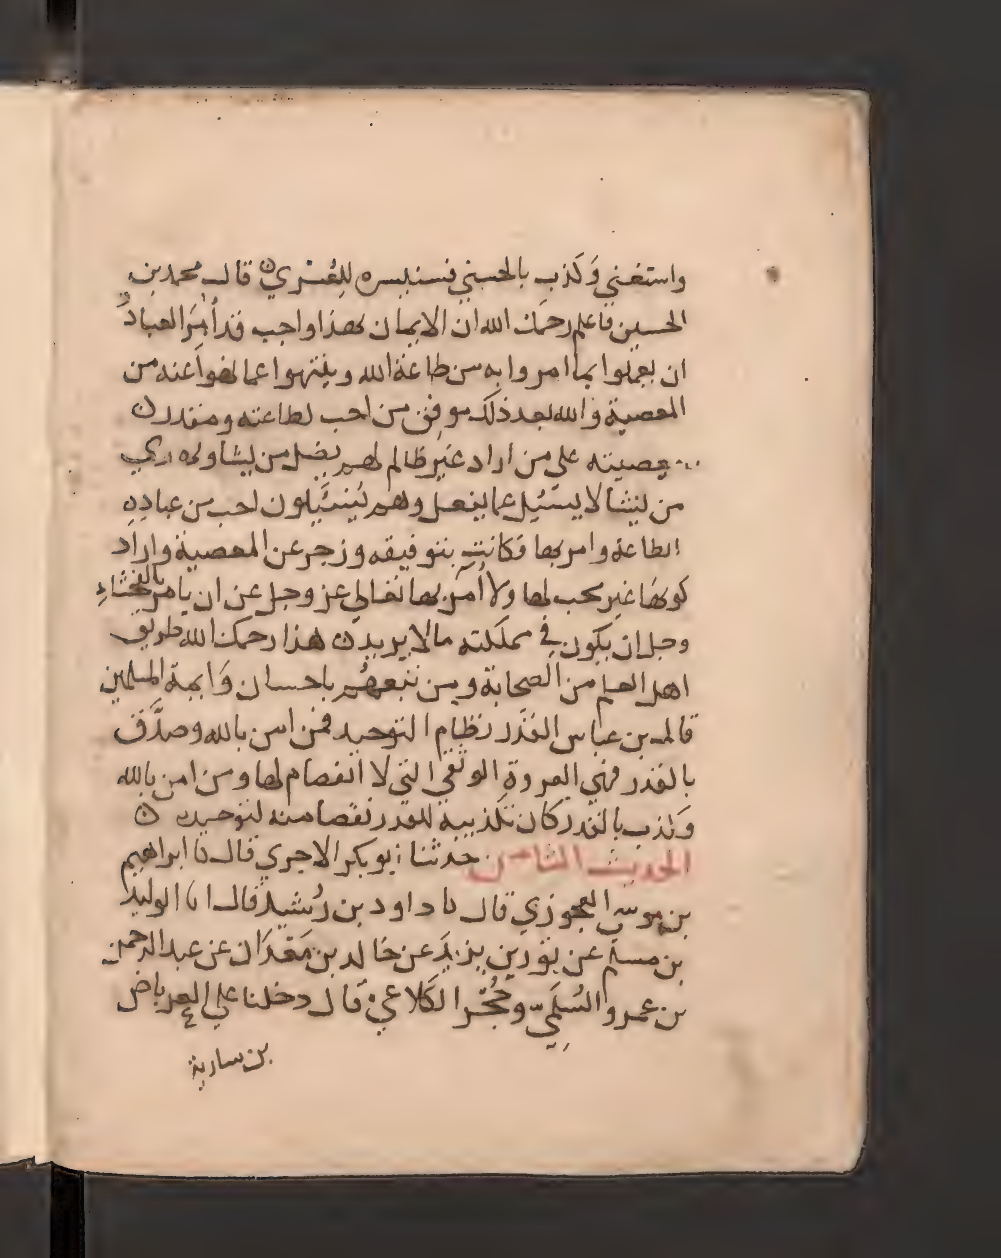 واستغني وَكَذب بالحسني فسنيسره للعُسْري ۞ قال محمد بن
الحسين فاعلم رحمك الله ان الايمان بهذا واجب قد أُمِرَ العبادُ
ان يعملوا بما امروا به من طاعة الله وينتهوا عما نهوا عنه من
المعصية والله بعد ذلك موفق من احب لطاعته ومقدر ن
معصيته على من اراد غير ظالم لهم يضل من يشا ويهدي
من يشا لا يسئيل عما يفعل وهم يُسئيلون احب من عبادِهِ
الطاعة وامر بها فكانت بتوفيقه وزجر عن المعصية واراد
كونها غير محب لها ولا أمر بها تعالي عز وجل عن ان يامر بالفحشاء
وجل ان يكون في مملكته مالا يريد ن هذا رحمك الله طريق
اهل العلم من الصحابة ومن تبعهُم باحسان وَايمة المسلمين
قال بن عباس القدَر نظام التوحيد فمن امن بالله وصدَّق
بالقدر فهي العروة الوثقي التي لا انفصام لها ومن امن بالله
وكذب بالقدر كان تكذيبه للقدر نقصا منه لتوحيده ۞
الحديث الثامن حدثنا ابو بكر الاجري قال نا ابراهيم
بن موسى الجوزي قال نا داود بن رُشيد قال انا الوليد
بن مسلم عن ثور بن يزيدَ عن خالد بن مَعْدَان عن عبد الرحمن
بن عمرو السُلَمِيّ وحُجْر الكَلاعي قال دخلنا علي العرباض
بن سارية